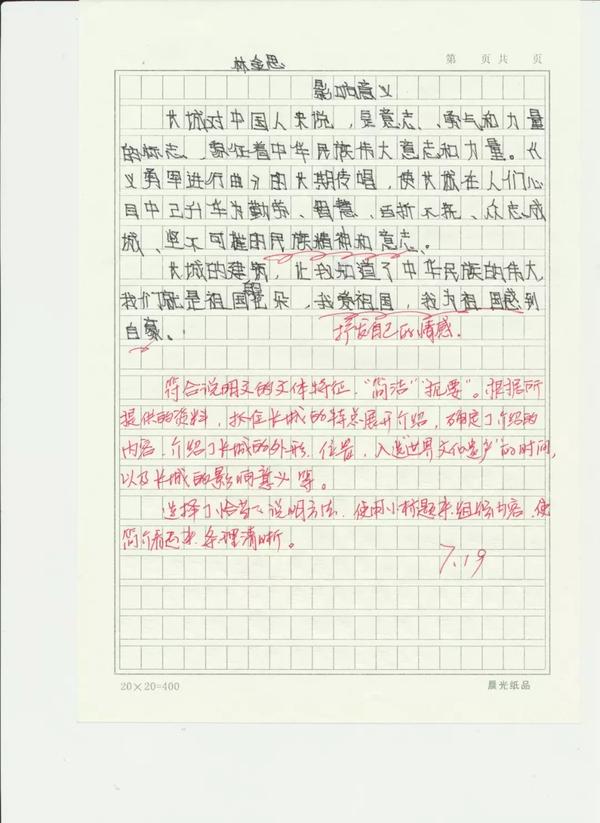 林金思
第 页 共 页
影响意义
长城对中国人来说，是意志、勇气和力量
的标志，象征着中华民族伟大意志和力量。《
义勇军进行曲》的长期传唱，使长城在人们心
目中已升华为勤劳、智慧、百折不挠、众志成
城、坚不可摧的民族精神和意志。
长城的建筑，让我知道了中华民族的伟大
我们就是祖国的花朵，我爱祖国，我为祖国感到
自豪。
抒发自己的情感.
符合说明文的文体特征，"简洁""扼要"。根据所
提供的资料，抓住长城的特点展开介绍，确定了介绍的
内容，介绍了长城的外形、位置，入选"世界文化遗产"的时间，
以及长城的影响意义等。
选择了恰当的说明方法，使用小标题来组织内容，使
简介看起来条理清晰。
7.19
20×20=400
晨光纸品